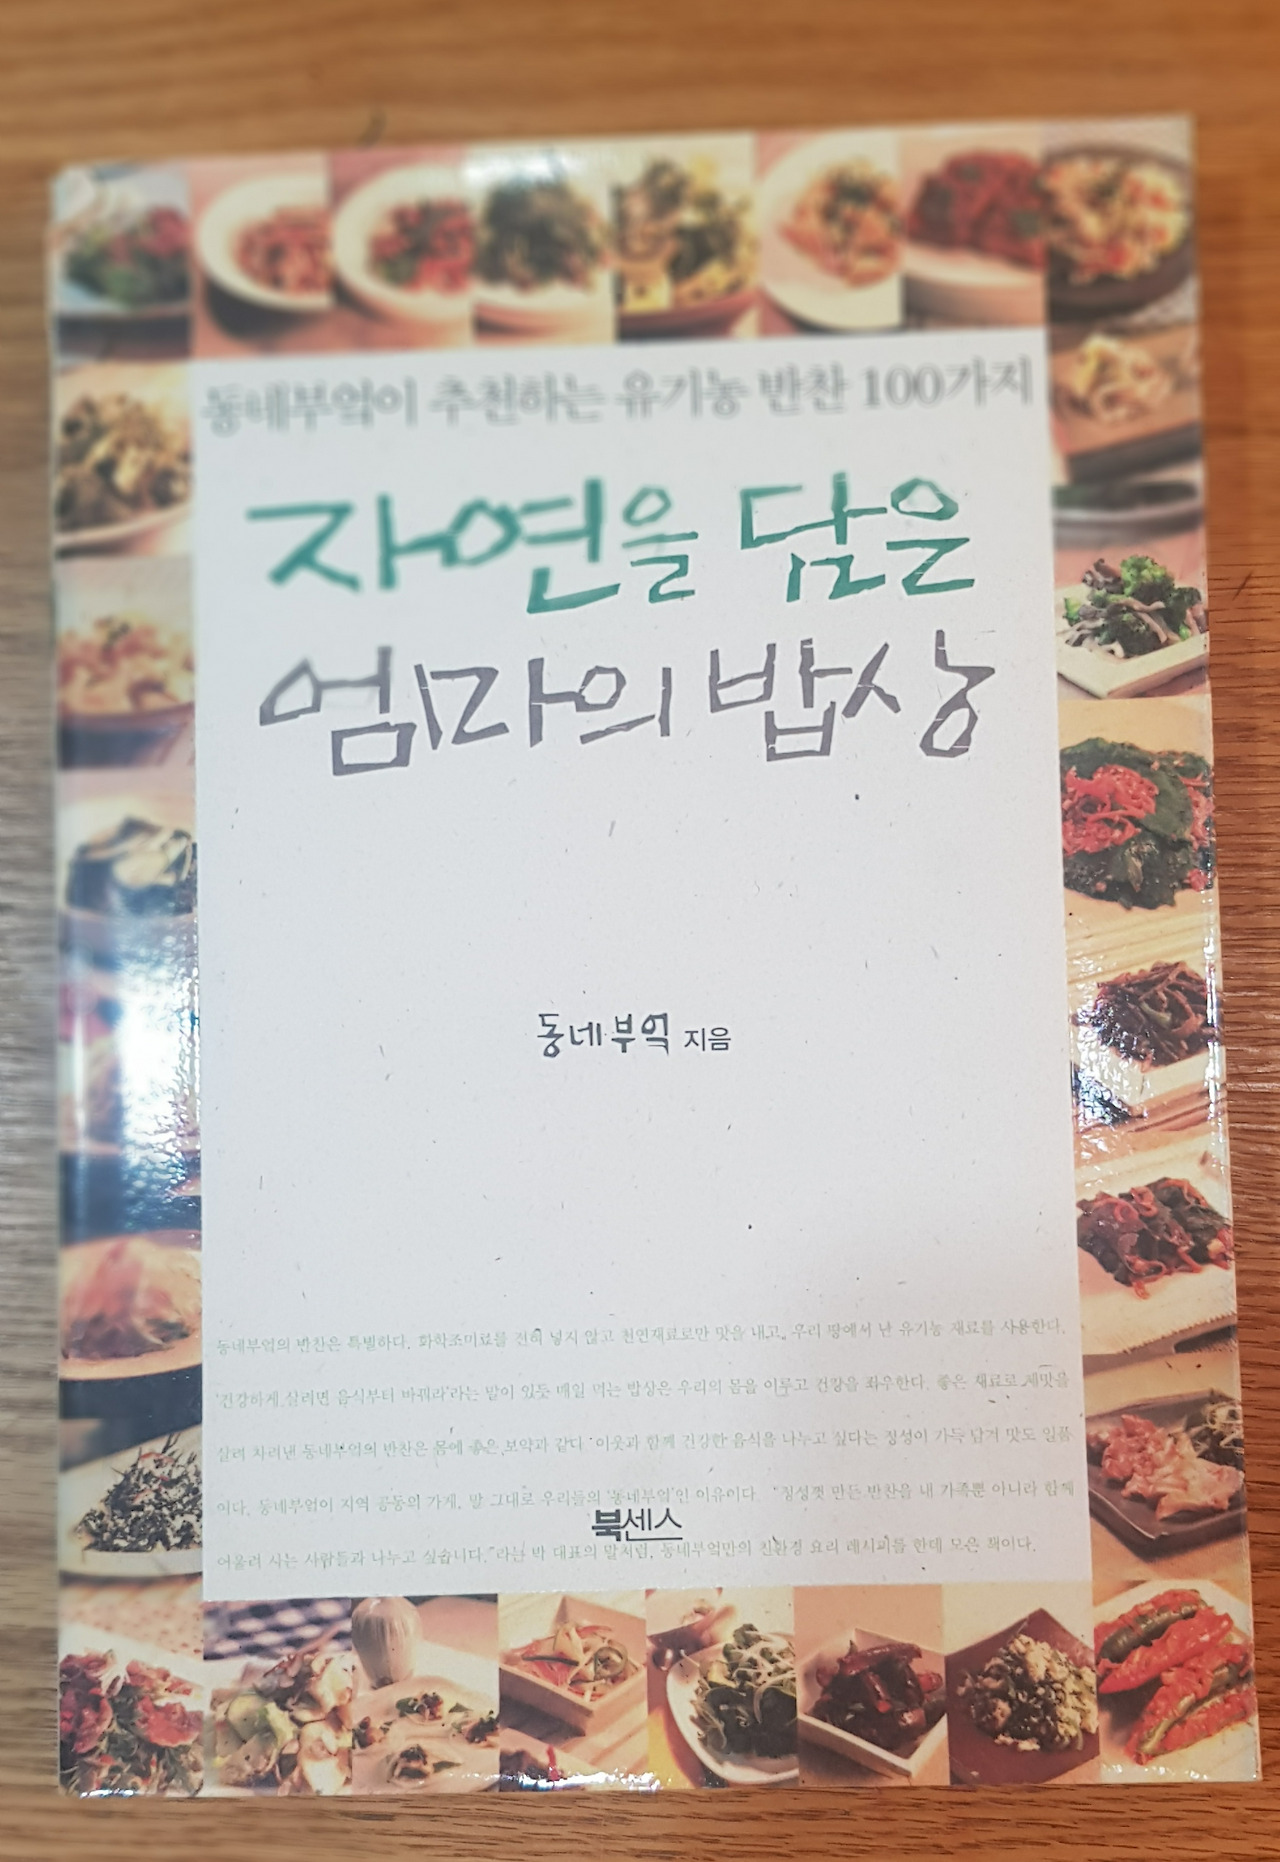 동네부엌이 추천하는 유기농 반찬 100가지
자연을 담은
엄마의 밥상
동네부엌 지음
동네부엌의 반찬은 특별하다. 화학조미료를 전혀 넣지 않고 천연재료로만 맛을 내고, 우리 땅에서 난 유기농 재료를 사용한다.
'건강하게 살려면 음식부터 바꿔라'라는 말이 있듯 매일 먹는 밥상은 우리의 몸을 이루고 건강을 좌우한다. 좋은 재료로 제맛을
살려 차려낸 동네부엌의 반찬은 몸에 좋은 보약과 같다. 이웃과 함께 건강한 음식을 나누고 싶다는 정성이 가득 담겨 맛도 일품
이다. 동네부엌이 지역 공동의 가게, 말 그대로 우리들의 '동네부엌'인 이유이다. "정성껏 만든 반찬을 내 가족뿐 아니라 함께
북센스
어울려 사는 사람들과 나누고 싶습니다."라는 박 대표의 말처럼, 동네부엌만의 친환경 요리 레시피를 한데 모은 책이다.